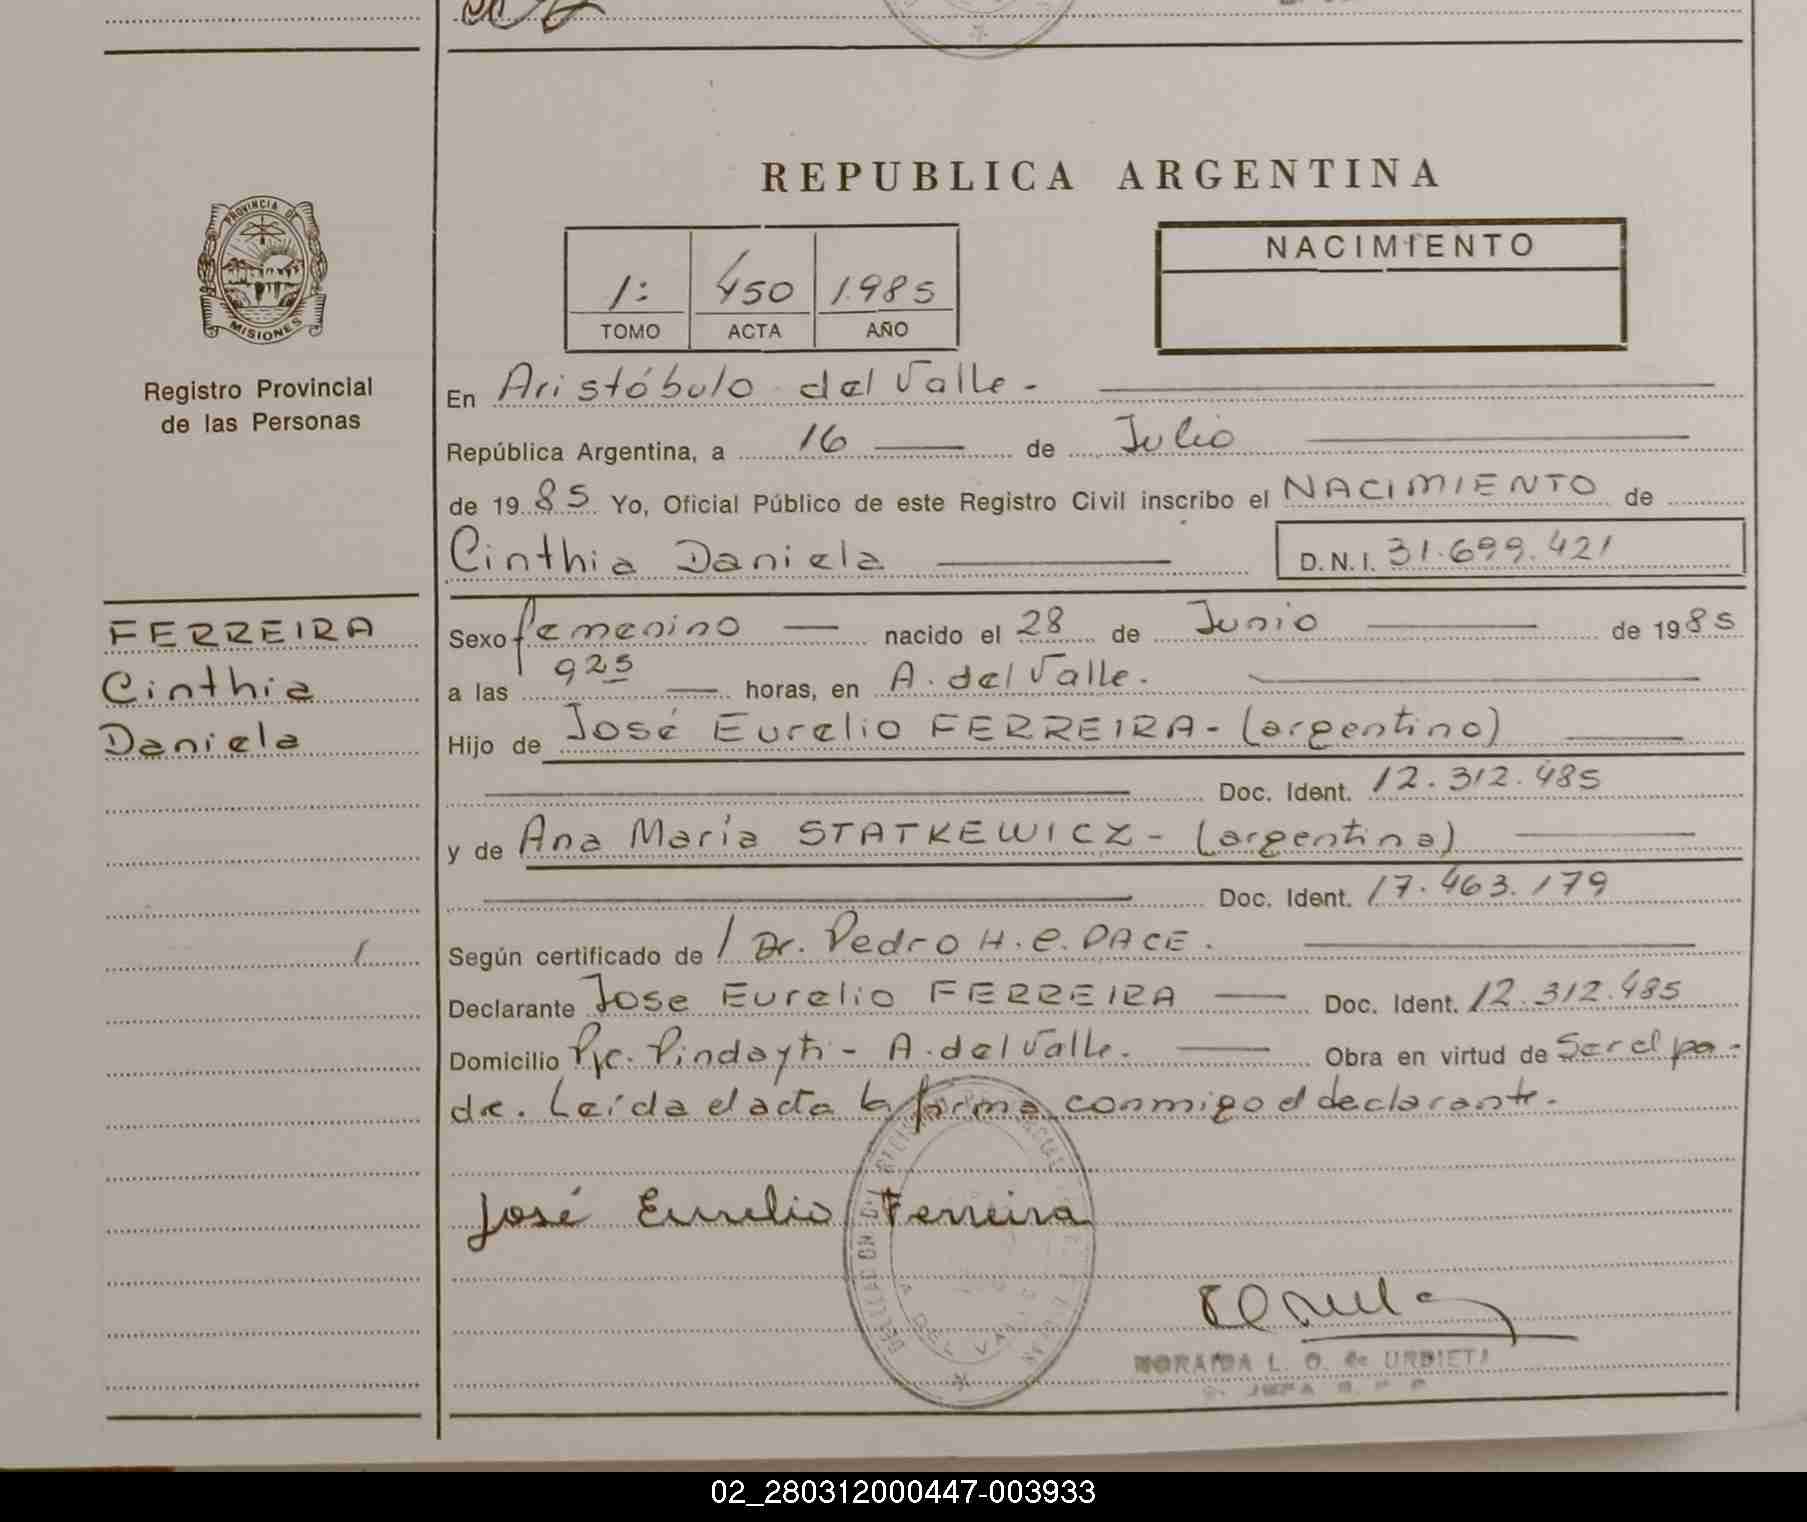 REPUBLICA ARGENTINA
PROVINCIA DE
MISIONES
Registro Provincial
de las Personas
1: 450 1.985
TOMO ACTA AÑO
NACIMIENTO
En Aristóbulo del Valle.
República Argentina, a 16 de Julio
de 1985 Yo, Oficial Público de este Registro Civil inscribo el NACIMIENTO de
Cinthia Daniela D.N.I. 31.699.421
FERREIRA
Cinthia
Daniela
Sexo femenino nacido el 28 de Junio de 1985
a las 925 horas, en A. del Valle.
Hijo de José Eurelio FERREIRA - (argentino)
Doc. Ident. 12.312.485
y de Ana María STATKEWICZ - (argentina)
Doc. Ident. 17.463.179
Según certificado de Dr. Pedro H. e. PACE.
Declarante Jose Eurelio FERREIRA Doc. Ident. 12.312.485
Domicilio Pje. Pindayti - A. del Valle. Obra en virtud de Ser el pa-
dre. Leída el acta la firma conmigo el declarante.
José Eurelio Ferreira
A. DEL VALLE
NORAIDA L. O. de URBIETA